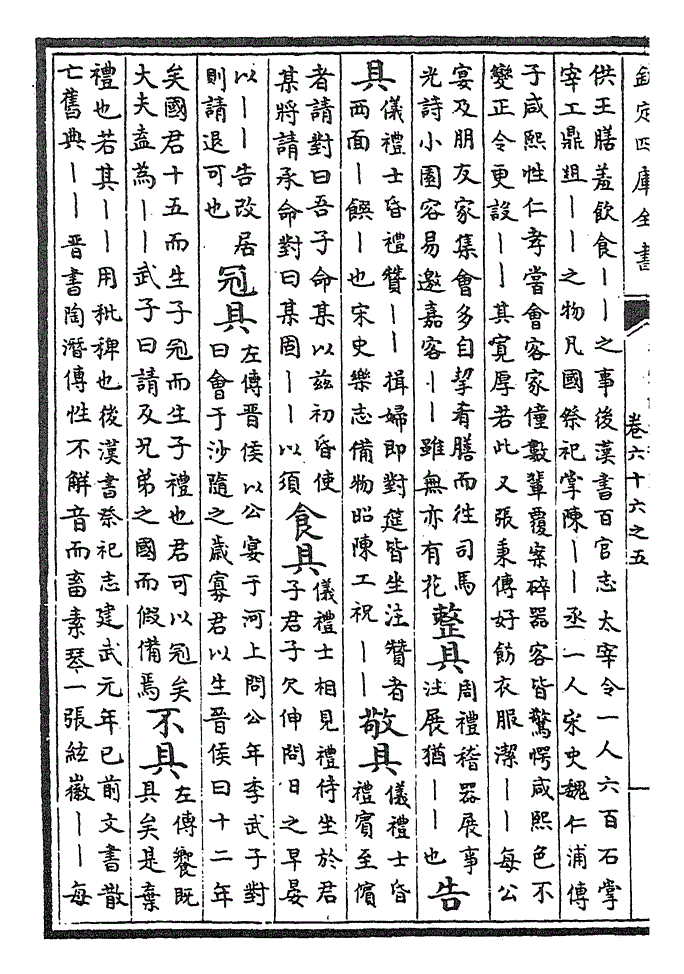 欽定四庫全書
卷六十六之五
供王膳羞飲食——之事後漢書百官志太宰令一人六百石掌
宰工鼎俎——之物凡國祭祀掌陳——丞一人宋史魏仁浦傳
子咸熙性仁孝嘗會客家僮數輩覆案碎器客皆驚愕咸熙色不
變正令更設——其寬厚若此又張秉傳好飭衣服潔——每公
宴及朋友家集會多自挈肴膳而往司馬
光詩小園容易邀嘉客——雖無亦有花
整具
周禮稽器展事
注展猶——也
告
具
儀禮士昏禮贊——揖婦即對筵皆坐注贊者
西面—饌—也宋史樂志備物昭陳工祝——
敬具
儀禮士昏
禮賓至儐
者請對曰吾子命某以兹初昏使
某將請承命對曰某固——以須
食具
儀禮士相見禮侍坐於君
子君子欠伸問日之早晏
以——告改居
則請退可也
冠具
左傳晉侯以公宴于河上問公年李武子對
曰會于沙隨之歲寡君以生晉侯曰十二年
矣國君十五而生子冠而生子禮也君可以冠矣
大夫盍為——武子曰請及兄弟之國而假備焉
不具
左傳饗既
具矣是棄
禮也若其——用秕稗也後漢書祭祀志建武元年已前文書散
亡舊典——晉書陶潛傳性不解音而畜素琴一張絃徽——每